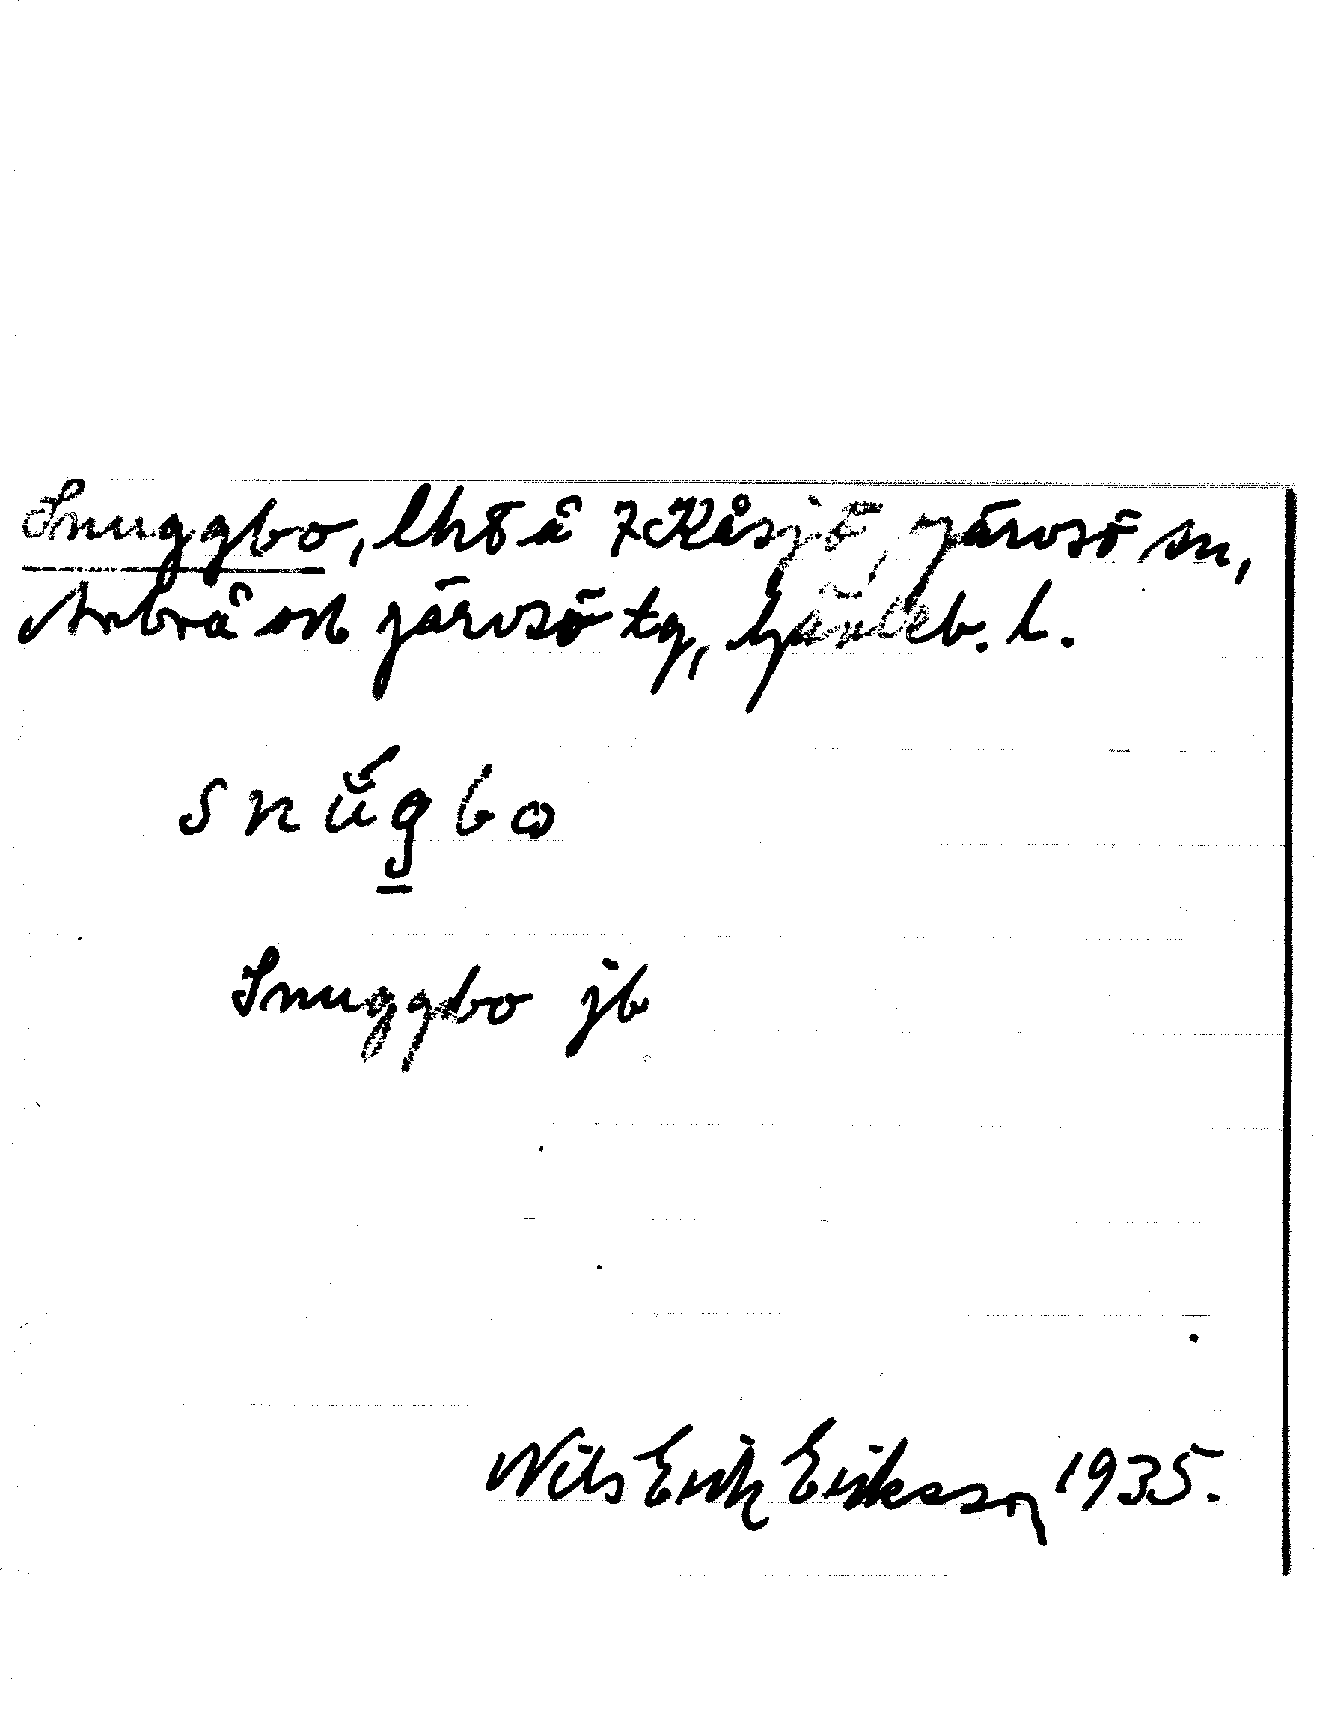 Snuggbo, lht å 7 Kåsjö, Järvsö sn,
Arbrå och Järvsö tg, Gävleb. l.
snŭ́g̲bo
Snuggbo jb
Nils Erik Eriksson 1935.